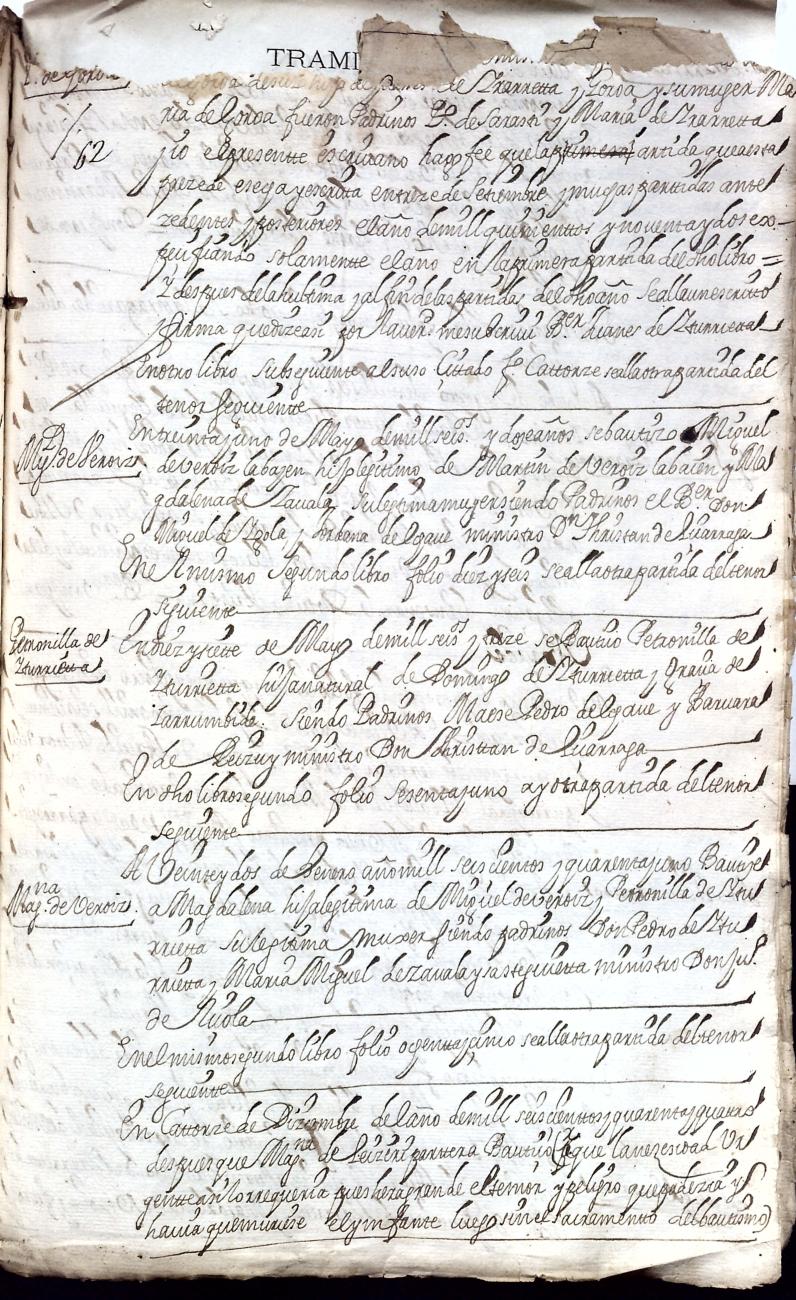 TRAMI
de Yturrietta y Loioa y su muger Ma
ria de Loioa fueron Padrinos Pº de Sarasti y Maria de Yrarretta
62
yo el presentte escrivano hago fee que la primera partida que a esta
preze de es ega y escritta en treze de Setiembre y muchas partidas ante
zedentes y posteriores el año de mill quinienttos y noventa y dos ex
pezifiando solamentte el año en la primera partida del dho libro =
Y despues de la ultima y al fin de las partidas del dho año se alla un escritto
y firma que dize asi por la ver. me subcrivi B.er Juanes de Yturrietta
En otro libro subsiguiente al suso Cittado fº Cattorze se alla otra partida del
tenor seguiente
En treinta y uno de Mayo de mill seisos y doze años se bautizo Miguel
Mig.l de Veroiz
de Veroiz labajen hijo legitimo de Martin de Veroiz labaien y Ma
gdalena de Zavala su legitima muger siendo Padrinos el B.er Don
Miguel de Ysola y Urbana de Egaue ministro Dn Christan de Luarraga
En el mismo segundo libro folio diez y seis se alla otra partida del tenor
siguiente
Petronilla de
Yturrietta
En diez y siette de Mayo de mill seisos y treze se Bautizo Petronilla de
Yturrietta hija natural de Domingo de Yturrietta y Gravia de
Larrumbide. siendo Padrinos Maese Pedro de Egaue y Barvara
de Leizu y ministro Don Christtan de Luarraga
En dho libro segundo folio sesenta y uno ay otra partida del tenor
seguiente
A Veinte y dos de Henero año mill seiscientos y quarenta y uno Bautize
Mag.na de Veroiz
a Magdalena hija legitima de Miguel de Veroiz y Petronilla de Ytu
rrietta su legitima muxer siendo padrinos Don Pedro de Ytu
rrietta y Maria Miguel de Zavala y sasteguietta ministro Don Ju.º
de Ysola
En el mismo segundo libro folio ogentta y cinco se alla otra partida del tenor
seguiente
En Cattorze de Diziembre del año de mill seiscienttos y quarenta y quattro
despues que Mag.na de Leizeri parttera Bautizo (que la nezesidad Ur
gentte asi lo requeria pues hera grande el temor y peligro que padezia y
havia que muriese el ynfante luego sin el sacramento del bautismo)